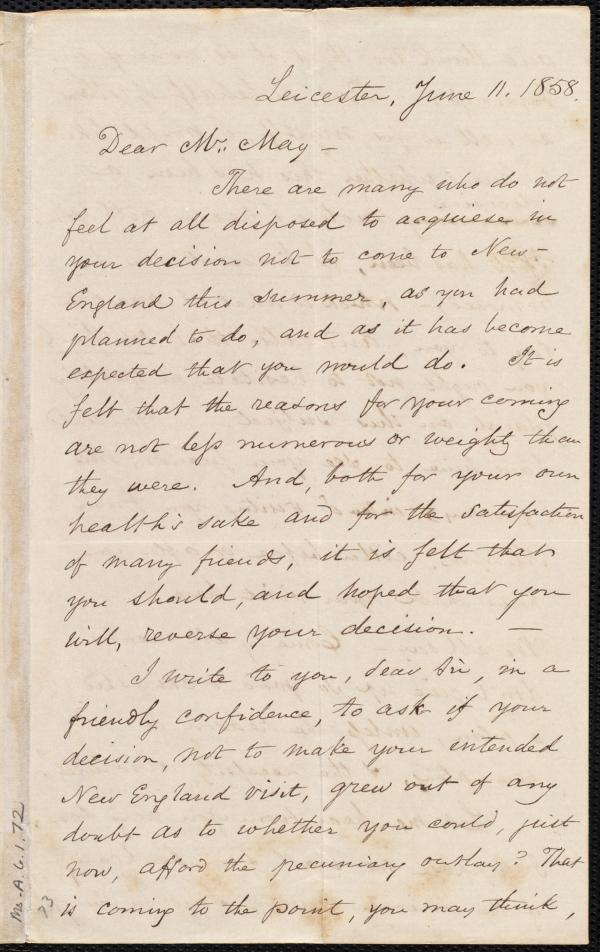 Leicester, June 11. 1858.
Dear Mr. May —
There are many who do not
feel at all disposed to acquiese in
your decision not to come to New-
England this summer, as you had
planned to do, and as it has become
expected that you would do. It is
felt that the reasons for your coming
are not less numerous or weighty than
they were. And, both for your own
health's sake and for the satisfaction
of many friends, it is felt that
you should, and hoped that you
will, reverse your decision. —
I write to you, dear Sir, in a
friendly confidence, to ask if your
decision, not to make your intended
New England visit, grew out of any
doubt as to whether you could, just
now, afford the pecuniary outlay? That
is coming to the point, you may think,
Ms. A. 6. 1. 72
23